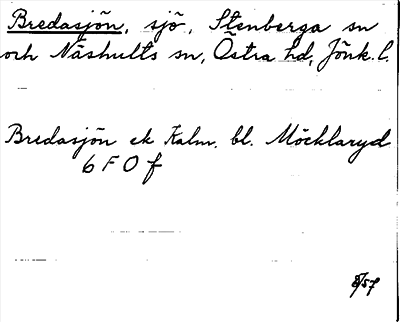 Bredasjön, sjö, Stenberga sn
och Näshults sn, Östra hd, Jönk. l.
Bredasjön ek Kalm. bl. Möcklaryd
6 F 0 f
8/57